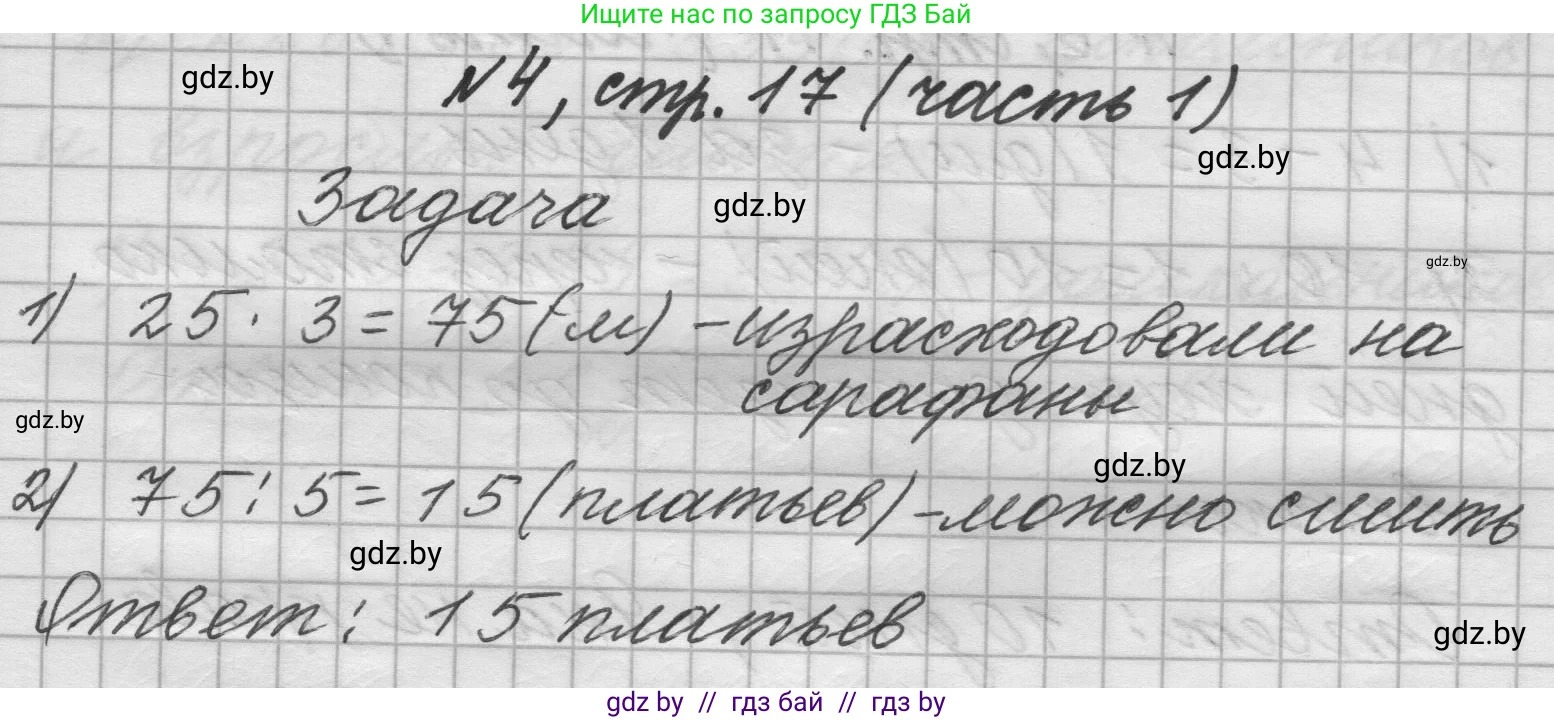 Ищите нас по запросу ГДЗ Бай
gdz.by
№4, стр. 17 (часть 1)
gdz.by
Задача
gdz.by
gdz.by
1) 25 · 3 = 75 (м) – израсходовали на
сарафаны
gdz.by
gdz.by
2) 75 : 5 = 15 (платьев) – можно сшить
gdz.by
Ответ: 15 платьев
gdz.by
gdz by // гдз бай // гдз by